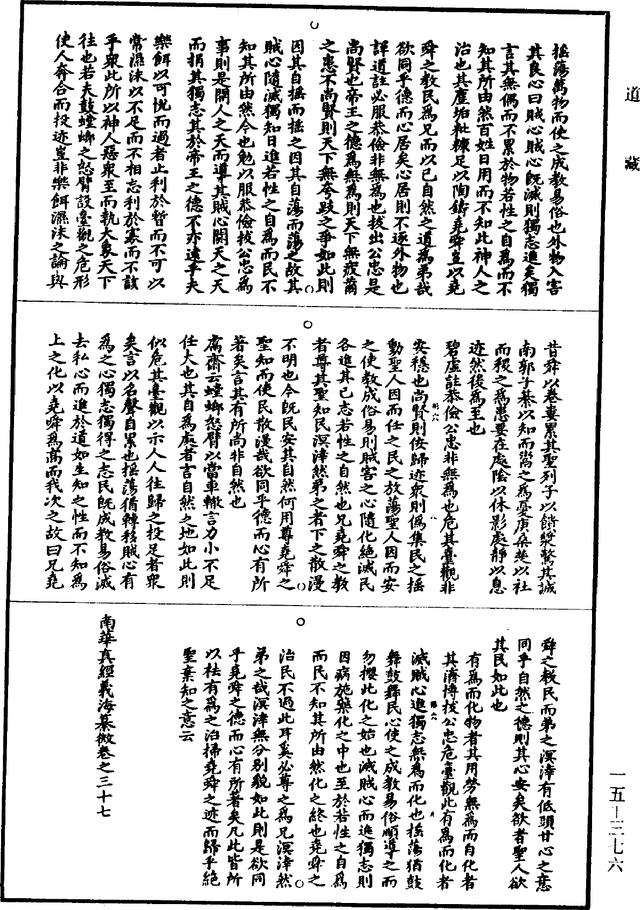 道藏
搖蕩萬物而使之成教易俗也外物入害
其良心曰賊心賊心既滅則獨志進矣獨
言其無偶而不累於物若性之自為而不
知其所由然百姓日用而不知此神人之
治也其塵垢粃糠足以陶鑄堯舜豈以堯
舜之教民為兄而以已自然之道為弟哉
欲同乎德而心居矣心居則不逐外物也
詳道註必服恭儉非無為也拔出公忠是
尚賢也帝王之德為無為則天下無疲薾
之患不尚賢則天下無夸跂之爭如此則
因其自搖而搖之因其自蕩而蕩之故其
賊心隨滅獨知日進若性之自為而民不
知其所由然今也勉以服恭儉拔公忠為
事則是開人之天而導其賊心開天之天
而捐其獨志其於帝王之德不亦遠乎夫
樂餌以可恱而過者止利於暫而不可以
常濕沬以不足而不相忘利於寡而不該
乎衆此所以神人惡衆至而執大象天下
往也若夫鼓螳蜋之怒臂設臺觀之危形
使人奔合而投迹豈非樂餌濕沬之論與
昔舜以卷婁累其聖列子以饋漿驚其誠
南郭子綦以知而鬻之為憂庚桑楚以社
而稷之為患要在處陰以休影處靜以息
迹然後為至也
碧虛註恭儉公忠非無為也危其臺觀非
安穩也尚賢則佞歸迹衆則偽集民之搖
動聖人因而任之民之放蕩聖人因而安
之使教成俗易則賊害之心隨化絶滅民
各進其已志若性之自然也兄堯舜之教
者尊其聖知民溟涬然弟之者下之散漫
不明也今既民安其自然何用尊堯舜之
聖知而使民散漫哉欲同乎德而心有所
著矣言其有所尚非自然也
鬳齋云螳蜋怒臂以當車轍言力小不足
任大也其自為處者言自然之地如此則
似危其臺觀以示人人往歸之投足者衆
矣言以名聲自累也搖蕩猶轉移賊心有
為之心獨志獨得之志民既成教易俗滅
去私心而進於道如生知之性而不知為
上之化以堯舜為高而我次之故曰兄堯
舜之教民而弟之溟涬有低頭甘心之意
同乎自然之德則其心安矣欲者聖人欲
其民如此也
有為而化物者其用勞無為而自化者
其濟博拔公忠危臺觀此有為而化者
滅賊心進獨志無為而化也搖蕩猶鼓
舞鼓舞民心使之成教易俗順導之而
勿攖此化之始也滅賊心而進獨志則
因病施藥化之中也至於若性之自為
而民不知其所由然化之終也堯舜之
治民不過此耳奚必尊之為兄溟涬然
弟之哉溟涬無分别貌如此則是欲同
乎堯舜之德而心有所著矣凡此皆所
以袪有為之治掃堯舜之迹而歸乎絶
聖棄知之意云
南華真經義海纂微卷之三十七
一五—三七六